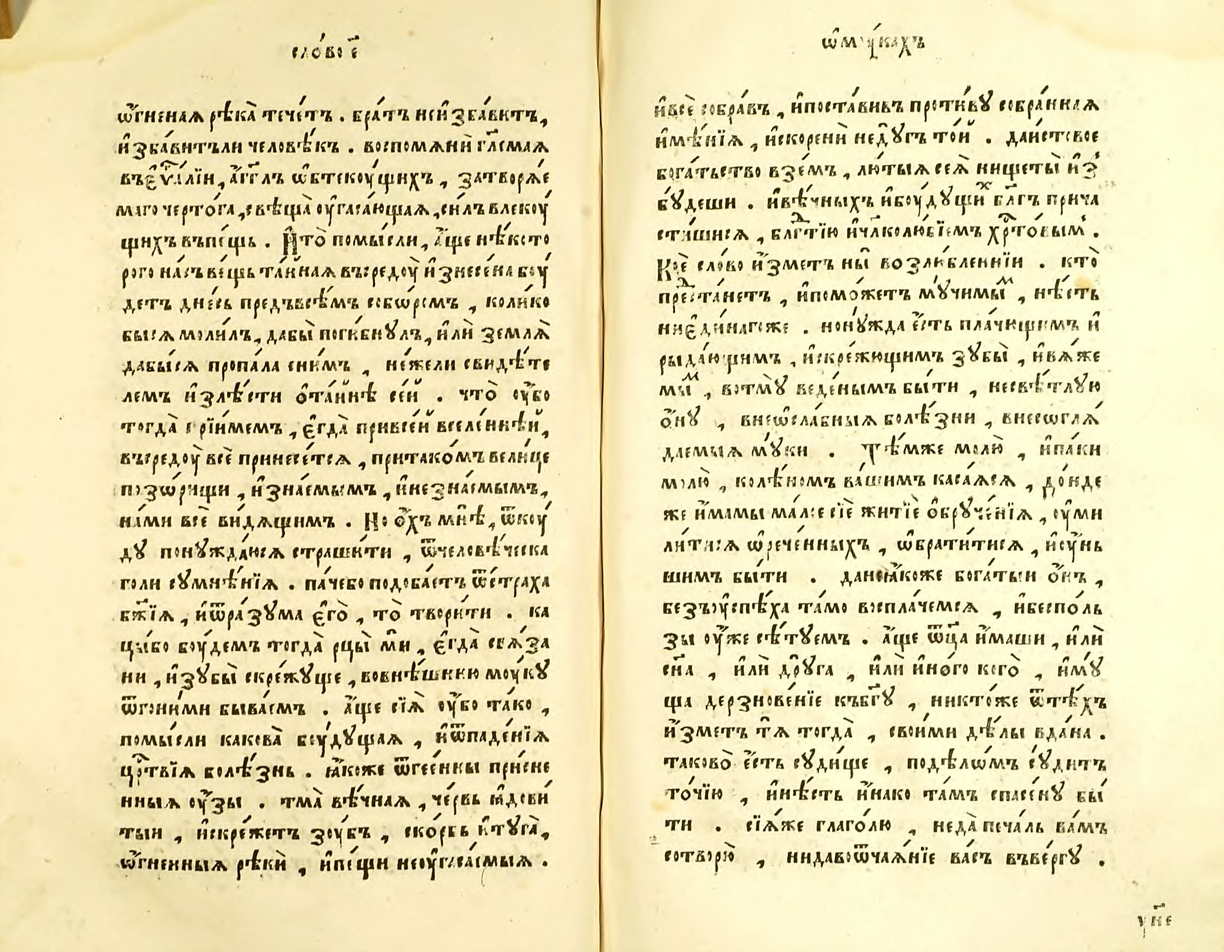 сло́во е҃
ѿгненаѧ рѣка̀ тече́тъ . бра́тъ неи҆збавитъ,
и҆збавитъли человѣ́къ . воспомѧнѝ гл҃емаѧ
въеѵⷢ҇алїи, а҆гг҃лъ ѡбтекоущихъ , затворѧ́е
маго черто́га, свѣща̀ оугаса́ющаѧ, силъ влекоу
щихъ въпе́щь . И҆то̀ помы́сли, а҆́ще нѣ́кото
рого на́съ ве́щь та́йнаѧ въсредоу̀ и҆знесена боу
детъ дне́сь предъвсѣ́мъ собѡ́ромъ , коли́ко
бысѧ моли́лъ, дабы̀ поги́бнꙋлъ, и҆лѝ землѧ̀
дабы́сѧ пропа́ла сни́мъ , не́жели свидѣ́те
лемъ и҆злѣ́сти ѻ҆та́йнѣ се́й . что̀ оу҆́бо
тогда̀ прїи́мемъ , є҆гда̀ привсе́й вселе́ннѣй,
въсредоу̀ всѐ принесе́тсѧ , притако́мъ вели́це
позѡ́рищи , и҆зна́емымъ , и҆незна́емымъ,
на́ми всѐ ви́дѧщимъ . Но ѻ҆́хъ мнѣ̀, ѿкоу́
дꙋ понꙋжда́исѧ страши́ти , ѿчеловѣ́ческа
голи сꙋмнѣ́нїѧ . па́чебо подоба́етъ ѿстраха
бж҃їѧ , и҆ѿра́зꙋма є҆го̀ , то̀ твори́ти . ка
цы́бо бо́удемъ тогда̀ рцы̀ мѝ , є҆гда̀ свѧ́за
ни , и҆зꙋбы̀ скреже́ꙋще , вовнѣ́шнюю мо́укꙋ
ѿгони́ми быва́емъ . а҆́ще сїѧ̀ оу҆́бо та́ко ,
помы́сли какова̀ боу́дꙋщаѧ , и҆ѿпаде́нїѧ
црⷭ҇твїѧ болѣ́знь . ꙗ҆коже ѿгеенны присне
нныѧ оу҆́зы . тма̀ вѣ́чнаѧ , че́рвь ꙗ҆дови
тыи , и҆скре́жетъ зоубъ , ско́рбь и҆тꙋга̀,
ѿгненныѧ рѣкѝ , и҆пе́щи неоугаса́емыѧ .
ѡ҆мꙋ́кахъ
и҆всѐ собра́въ , и҆поста́вивъ проти́вꙋ собра́нная
и҆мѣ́нїѧ , и҆скоренѝ недꙋ́гъ то́й . даи҆стовое
бога́тьство взе́мъ , лю́тыѧ сеѧ̀ нищеты̀ и҆з̾
бꙋ́деши . и҆вѣ́чныхъ и҆боу́дꙋщиⷯ бл҃гъ прича
сти́шисѧ , блⷣгтїю и҆чл҃колю́бїемъ хрⷭ҇то́вымъ .
Ко́е сло́во и҆зметъ ны̀ возлю́бленнїи . кто̀
преⷣста́нетъ , и҆помо́жетъ мꙋ́чимыⷨ , нѣ́сть
ниеди́нагоже . нонꙋ́жда є҆́сть пла́чꙋщимъ и҆
рыда́ющимъ , и҆скре́жющимъ зꙋбы̀ , и҆вѧ́же
мыⷨ , вотмꙋ̀ веде́нымъ бы́ти , несвѣ́тлꙋю
ѻ҆́нꙋ , внеѡсла́бныѧ болѣ́зни , внесѡглѧ́
даемыѧ мꙋ́ки . Тѣ́мже молю̀ , и҆па́ки
молю̀ , колѣ́номъ ва́шимъ каса́ѧсѧ , до́нде
же и҆́мамы ма́лое сїѐ житїѐ ѻ҆брꙋче́нїѧ , оуми
ли́тисѧ ѡ҆рече́нныхъ , ѡ҆брати́тисѧ , и҆оу҆нь
шимъ бы́ти . данеꙗ҆́коже бога́тыи ѻ҆́нъ ,
безъоуспѣ́ха та́мо воспла́чемсѧ , и҆беспо́ль
зы оу҆же сѣ́тꙋемъ . а҆́ще ѿц҃а и҆́маши , и҆лѝ
сн҃а , и҆лѝ дрꙋ́га , и҆лѝ и҆но́го кого̀ , и҆мꙋ́
ща дерзнове́нїе къбг҃ꙋ , никто́же ѿтѣ́хъ
и҆зметъ тѧ̀ тогда̀ , свои́ми дѣ́лы вда́на .
таково̀ є҆́сть сꙋди́ще , подѣ́лѡмъ сꙋ́дитъ
то́чїю , и҆нѣ́сть и҆нако та́мъ спасе́нꙋ бы́
ти . сїѧ́же глаго́лю , неда̀ печа́ль ва́мъ
сотворю̀ , нидавоѿча́ѧнїе ва́съ въве́ргꙋ .
оу҆не